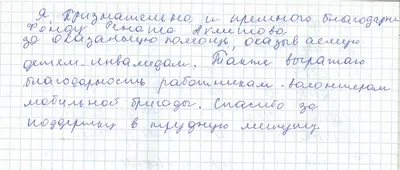 Я, признательна и премного благодарна
Фонду Рената Ахметова
за оказанную помощь, оказываемую
детям-инвалидам. Также выражаю
благодарность работникам-волонтерам
мобильной бригады. Спасибо за
поддержку в трудную минуту.